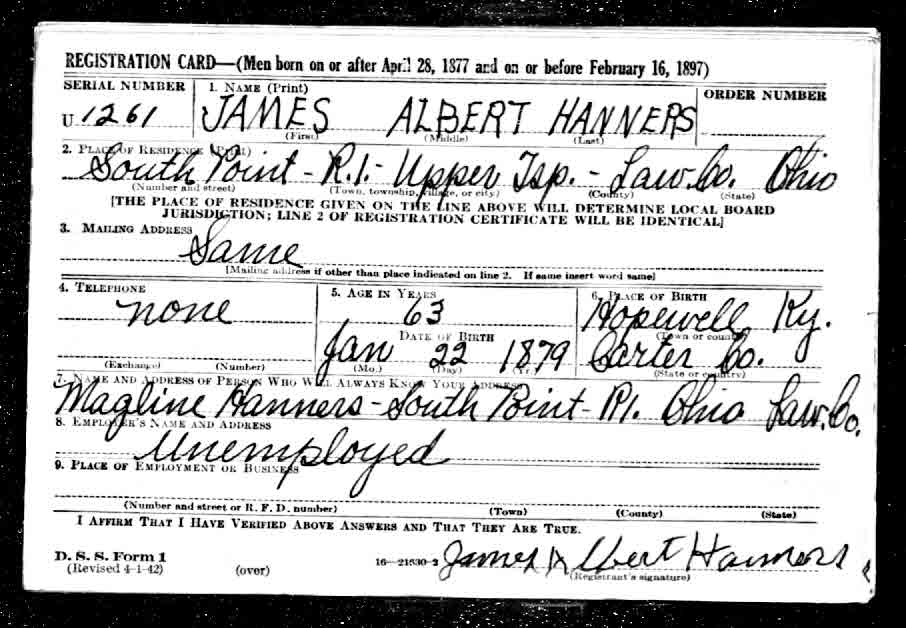 REGISTRATION CARD—(Men born on or after April 28, 1877 and on or before February 16, 1897)
SERIAL NUMBER 1. NAME (Print) ORDER NUMBER
U 1261 JAMES ALBERT HANNERS
(First) (Middle) (Last)
2. PLACE OF RESIDENCE (Print)
South Point - R.1. - Upper Tsp. - Law. Co. Ohio
(Number and street) (Town, township, village, or city) (County) (State)
[THE PLACE OF RESIDENCE GIVEN ON THE LINE ABOVE WILL DETERMINE LOCAL BOARD
JURISDICTION; LINE 2 OF REGISTRATION CERTIFICATE WILL BE IDENTICAL]
3. MAILING ADDRESS
Same
[Mailing address if other than place indicated on line 2. If same insert word same]
4. TELEPHONE 5. AGE IN YEARS 6. PLACE OF BIRTH
none 63 Hopewell Ky.
(Town or county)
DATE OF BIRTH
Jan 22 1879 Carter Co.
(Exchange) (Number) (Mo.) (Day) (Yr.) (State or country)
7. NAME AND ADDRESS OF PERSON WHO WILL ALWAYS KNOW YOUR ADDRESS
Magline Hanners - South Point - R1. Ohio Law. Co.
8. EMPLOYER'S NAME AND ADDRESS
Unemployed
9. PLACE OF EMPLOYMENT OR BUSINESS
(Number and street or R. F. D. number) (Town) (County) (State)
I AFFIRM THAT I HAVE VERIFIED ABOVE ANSWERS AND THAT THEY ARE TRUE.
D. S. S. Form 1
(Revised 4-1-42) (over) 16—21630-2 James Albert Hanners
(Registrant's signature)